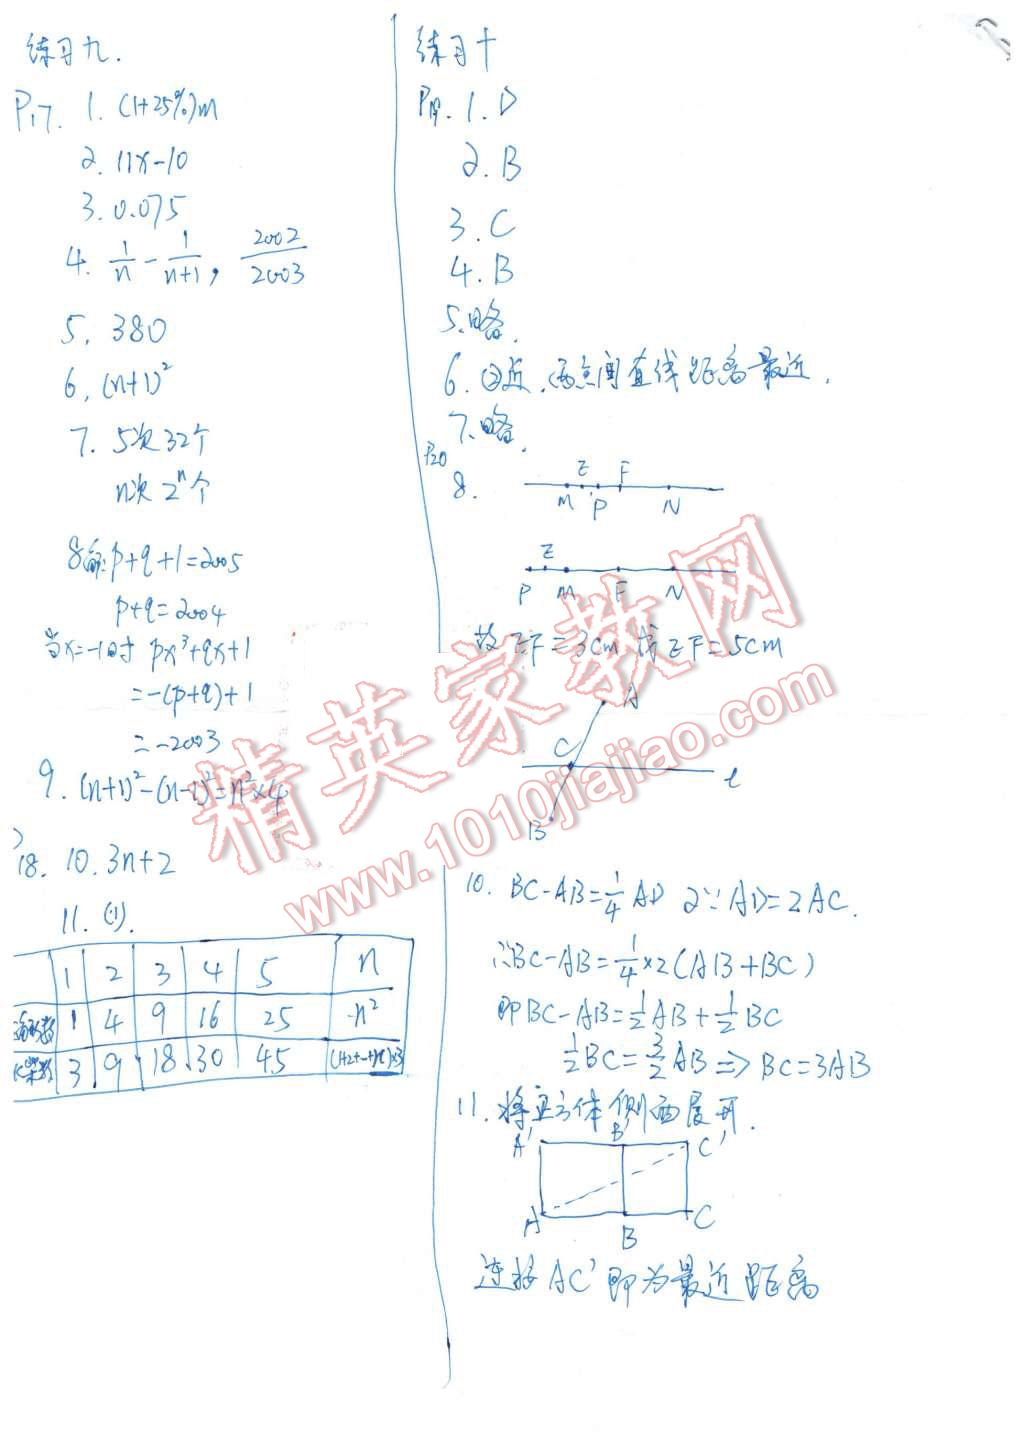 练习九.
P17. 1. (1+25%)m
2. 11x-10
3. 0.075
4. 1/n - 1/(n+1), 2002/2003
5. 380
6. (n+1)²
7. 5次32个
n次 2ⁿ个
8解: p+q+1=2005
p+q=2004
当x=-1时 px³+qx+1
=-(p+q)+1
=-2003
9. (n+1)²-(n-1)²=n²×4
18. 10. 3n+2
11. (1).
1 2 3 4 5 n
1 4 9 16 25 n²
3 9 18 30 45 (1+2+…+n)×3
练习十
P19. 1. D
2. B
3. C
4. B
5. 略.
6. ②近, 两点间直线距离最近.
7. 略.
P20
8.
E F
M P N
E
P M F N
故EF=3cm 或EF=5cm
A
C
l
B
10. BC-AB=1/4 AD 2∵AD=2AC.
∴BC-AB=1/4×2(AB+BC)
即BC-AB=1/2AB+1/2BC
1/2BC=3/2AB => BC=3AB
11. 将正方体侧面展开.
A' B' C'
A B C
连接AC'即为最近距离
精英家教网
www.1010jiajiao.com